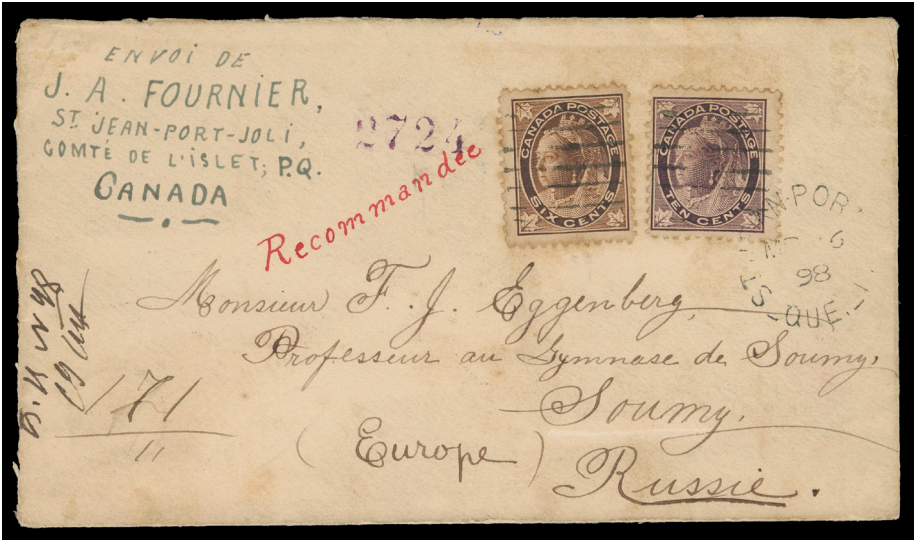 ENVOI DE
J. A. FOURNIER,
ST. JEAN-PORT-JOLI,
COMTÉ DE L'ISLET, P.Q.
CANADA
2724
Recommandée
CANADA POSTAGE
SIX CENTS
CANADA POSTAGE
TEN CENTS
98
QUE.
Monsieur F. J. Eggenberg,
Professeur au Gymnase de Soumy,
Soumy.
(Europe)
Russie.
171
11